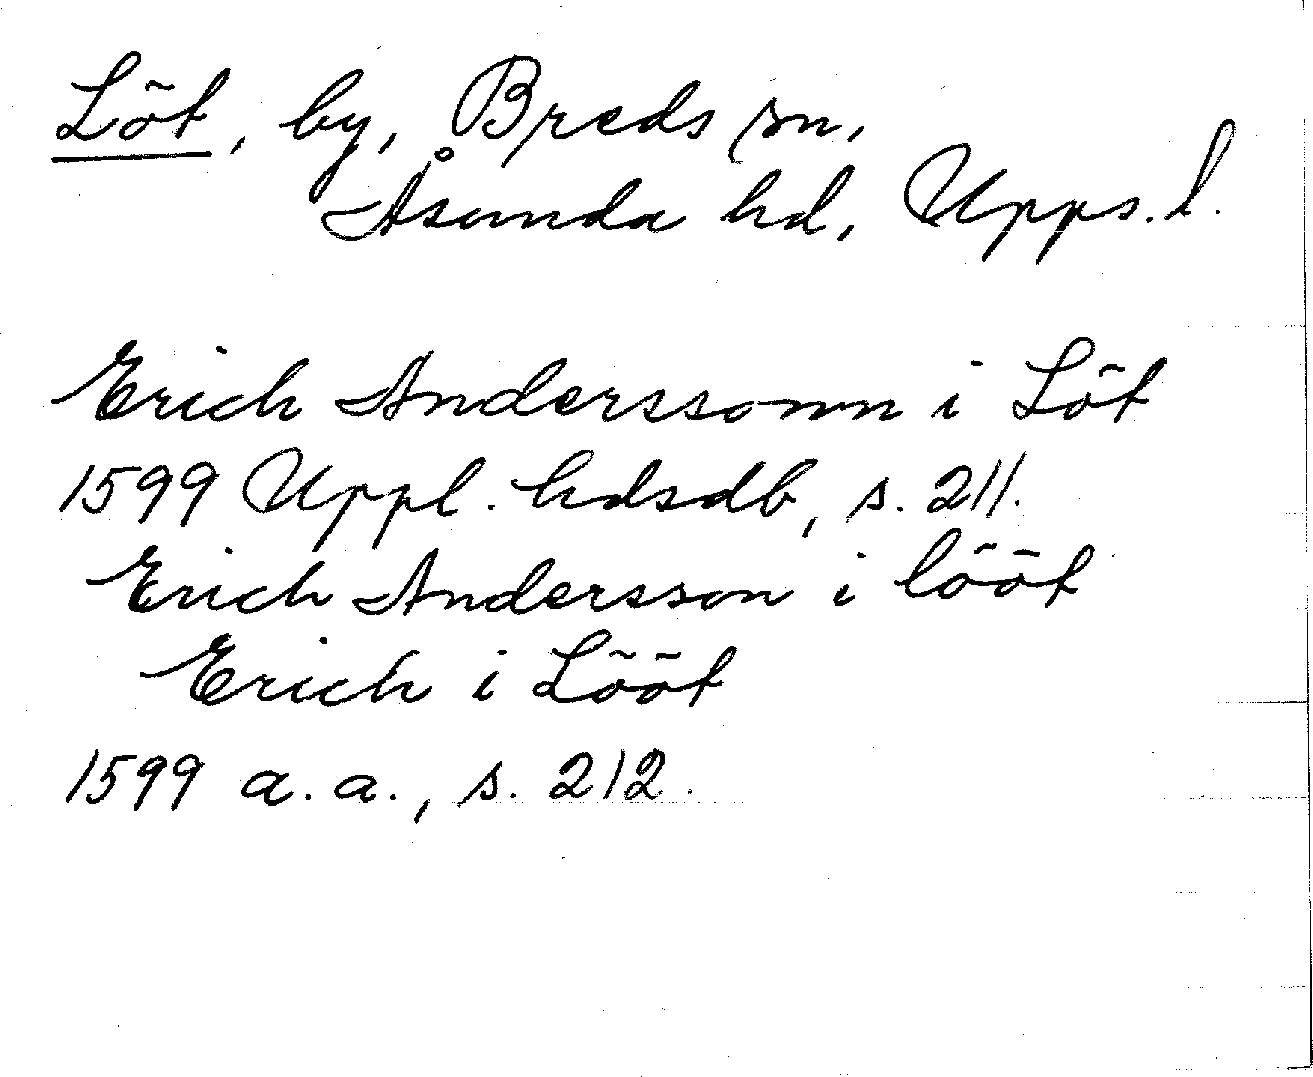 Löt, by, Breds sn,
Åsunda hd, Upps. l.
Erich Anderssonn i Löt
1599 Uppl. hdsdb, s. 211.
Erich Andersson i lööt
Erich i Lööt
1599 a. a., s. 212.